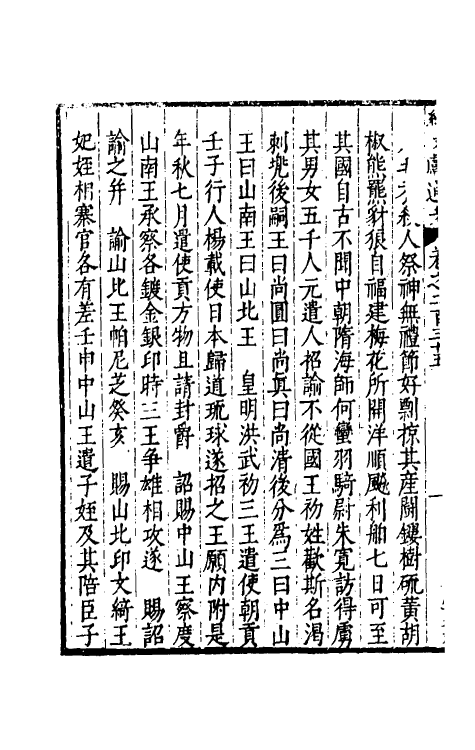 人祭神無禮節好剽掠其産鬭鏤樹硫黃胡
椒熊羆豺狼自福建梅花所開洋順颷利舶七日可至
其國自古不聞中朝隋海師何蠻羽騎尉朱寛訪得虜
其男女五千人元遣人招諭不從國王初姓歡斯名渴
刺兜後嗣王曰尚圓曰尚眞曰尚清後分爲三曰中山
王曰山南王曰山北王 皇明洪武初三王遣使朝貢
壬子行人楊載使日本歸道琉球遂招之王願内附是
年秋七月遣使貢方物且請封爵 詔賜中山王察度
山南王承察各鍍金銀印時三王争雄相攻遂 賜詔
諭之并 諭山北王帕尼芝癸亥 賜山北印文綺王
妃姪相寨官各有差壬申中山王遣子姪及其陪臣子